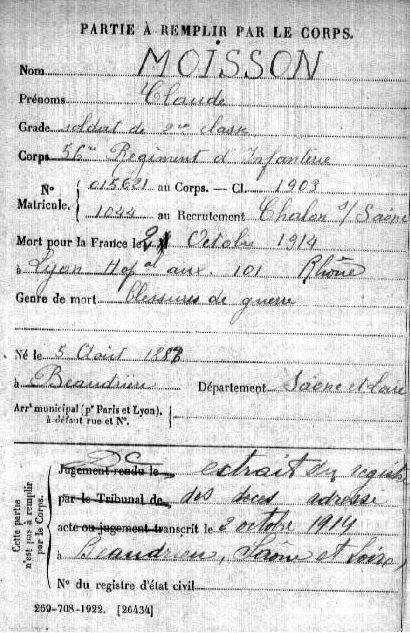 PARTIE À REMPLIR PAR LE CORPS.
Nom MOISSON
Prénoms Claude
Grade soldat de 2me classe
Corps 56me Régiment d'Infanterie
N° Matricule. { 015621 au Corps. — Cl. 1903
1044 au Recrutement Chalon s/ Saône
Mort pour la France le 2 Octobre 1914
à Lyon Hopal aux. 101 Rhône
Genre de mort blessures de guerre
Né le 5 Août
à Beaudrieu Département Saône et Loire
Arrt municipal (pr Paris et Lyon), à défaut rue et N°.
Cette partie n'est pas à remplir par le Corps.
Jugement rendu le extrait du regist
par le Tribunal de des adresse
acte ou jugement transcrit le 2 octobre 1914
à Beaudrieu, Saône et Loire
N° du registre d'état civil
269-708-1922. [26434]